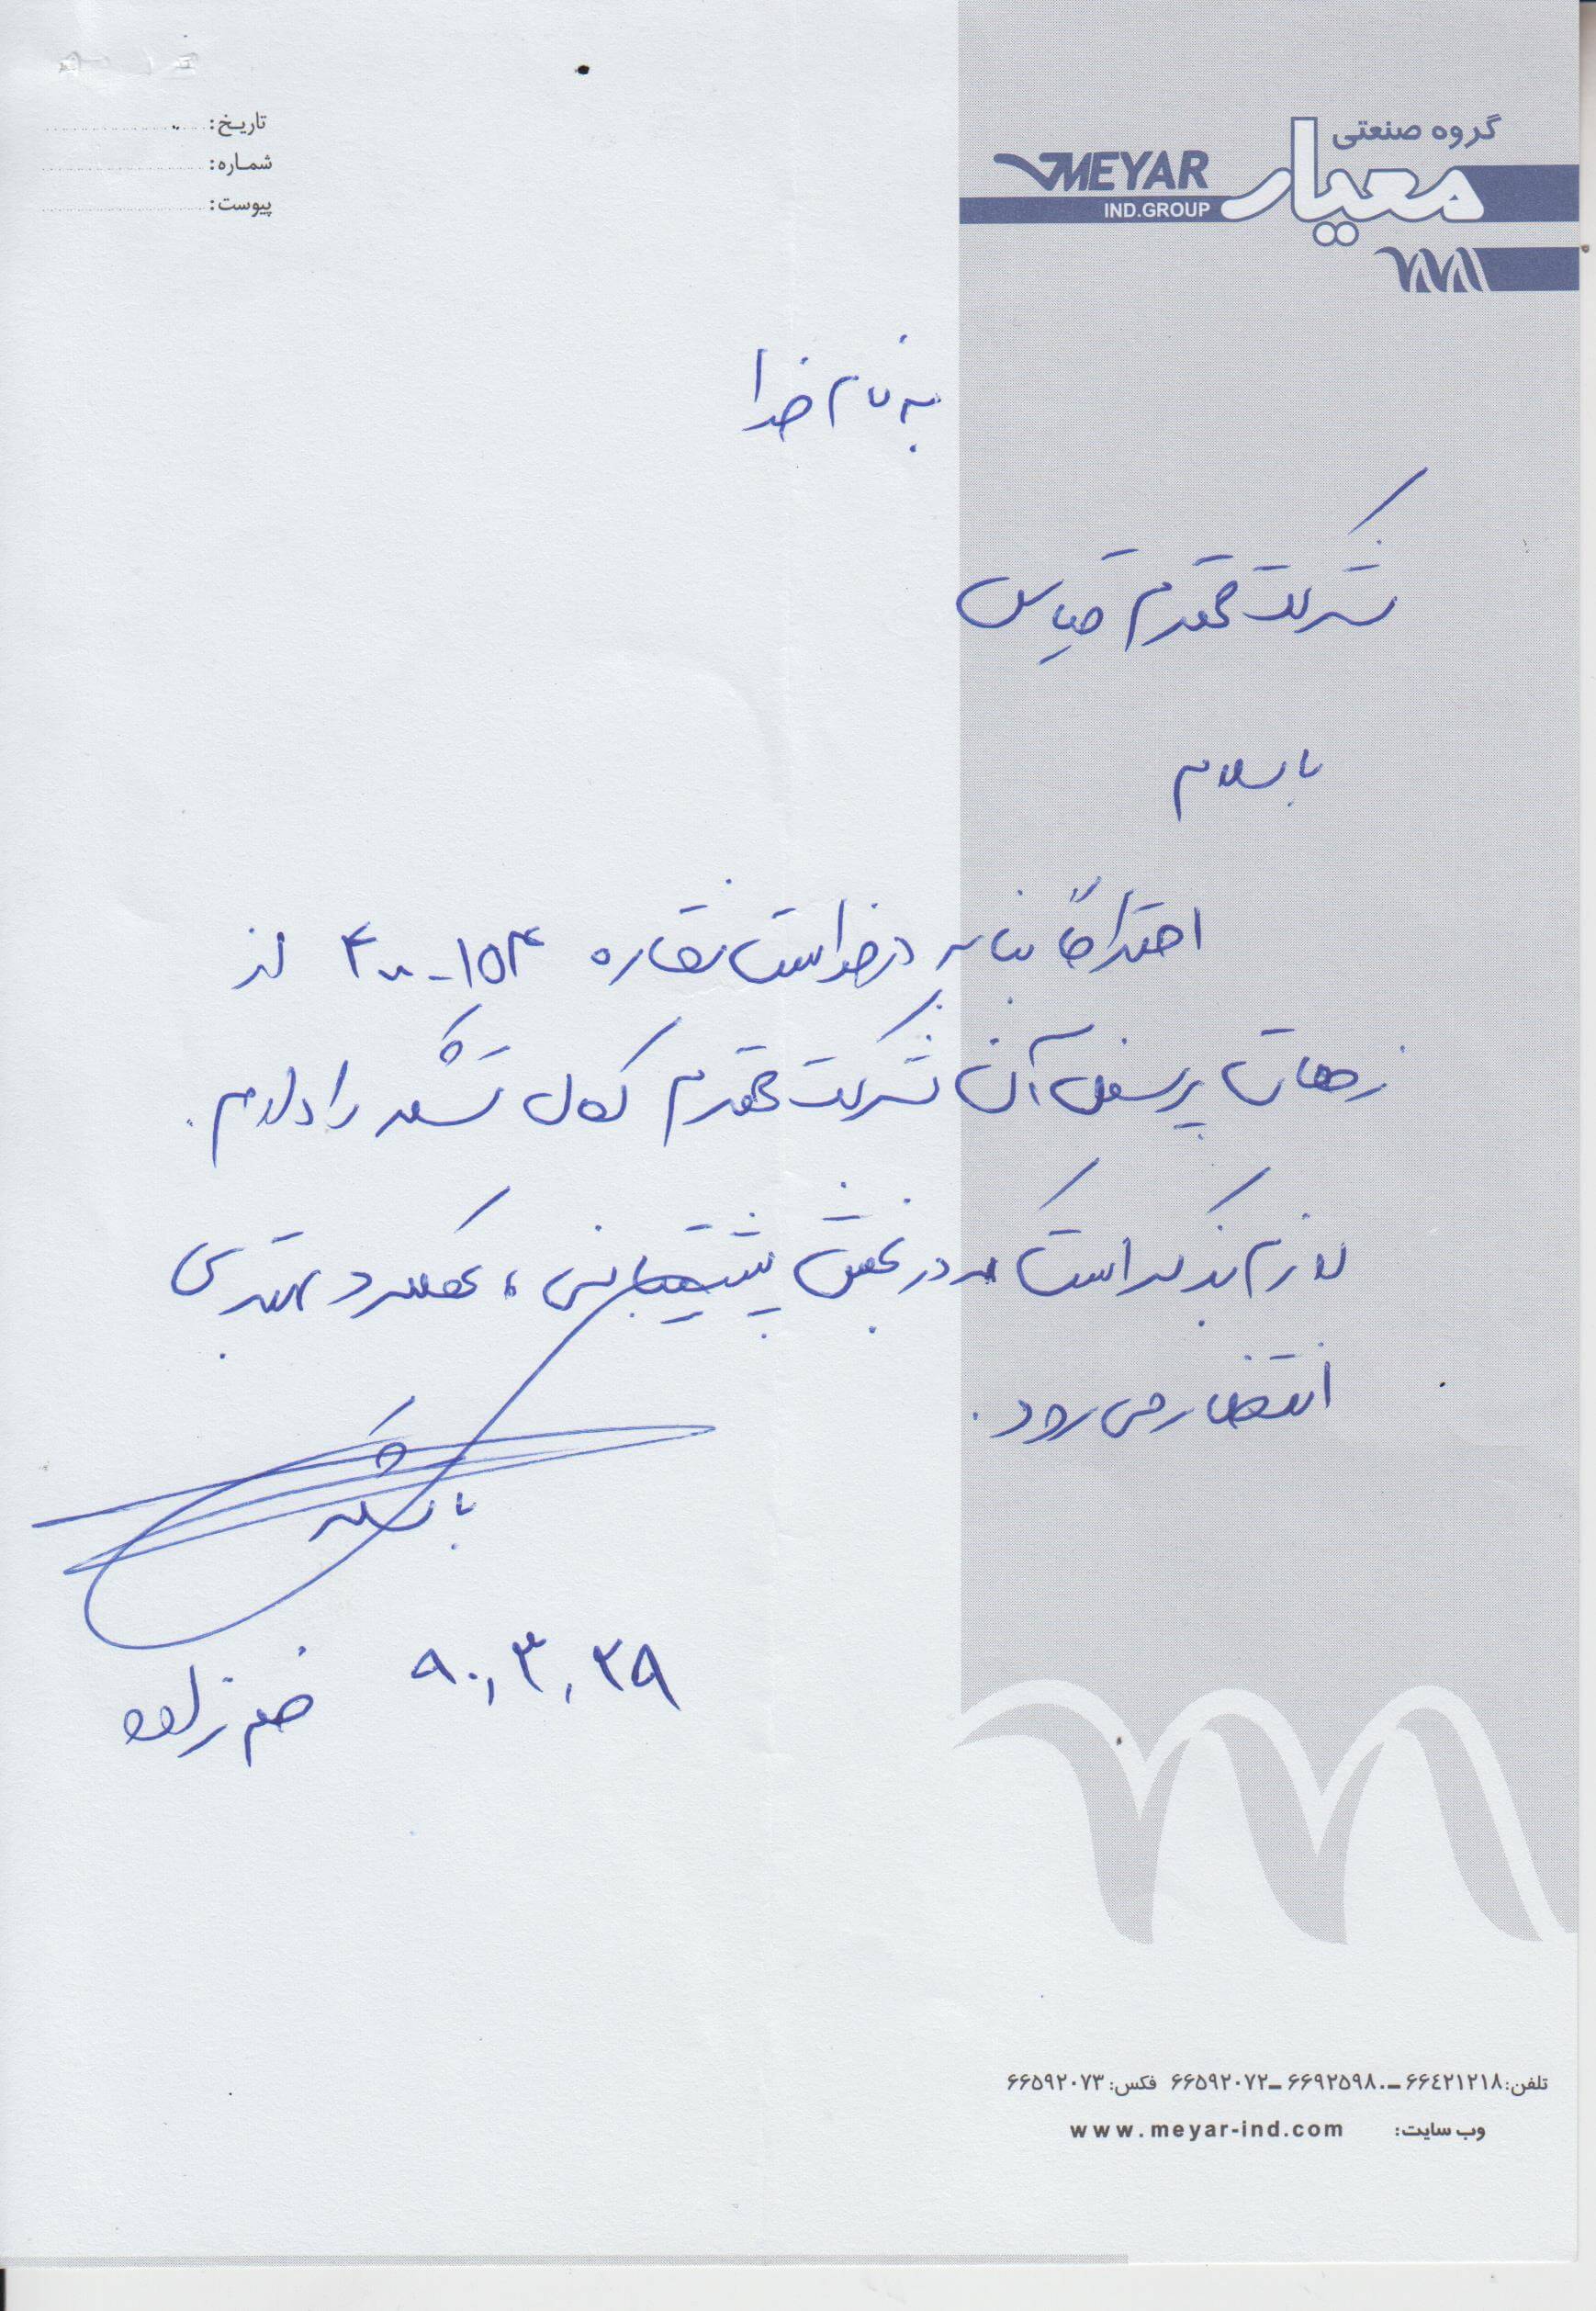 گروه صنعتی
معیار
MEYAR
IND.GROUP
تاریخ:
شماره:
پیوست:
به نام خدا
شرکت محترم قیاس
با سلام
احتراماً بنا به درخواست شماره ۱۵۴-۴۰۰ از
زحمات پرسنل آن شرکت محترم کمال تشکر را دارم.
لازم بذکر است که در بخش پشتیبانی، عملکرد بهتری
انتظار می رود.
با تشکر
۹۰,۳,۲۹
تلفن: ۶۶۴۲۱۲۱۸ – ۶۶۹۲۵۹۸۰ – ۶۶۵۹۲۰۷۲ فکس: ۶۶۵۹۲۰۷۳
وب سایت: www.meyar-ind.com